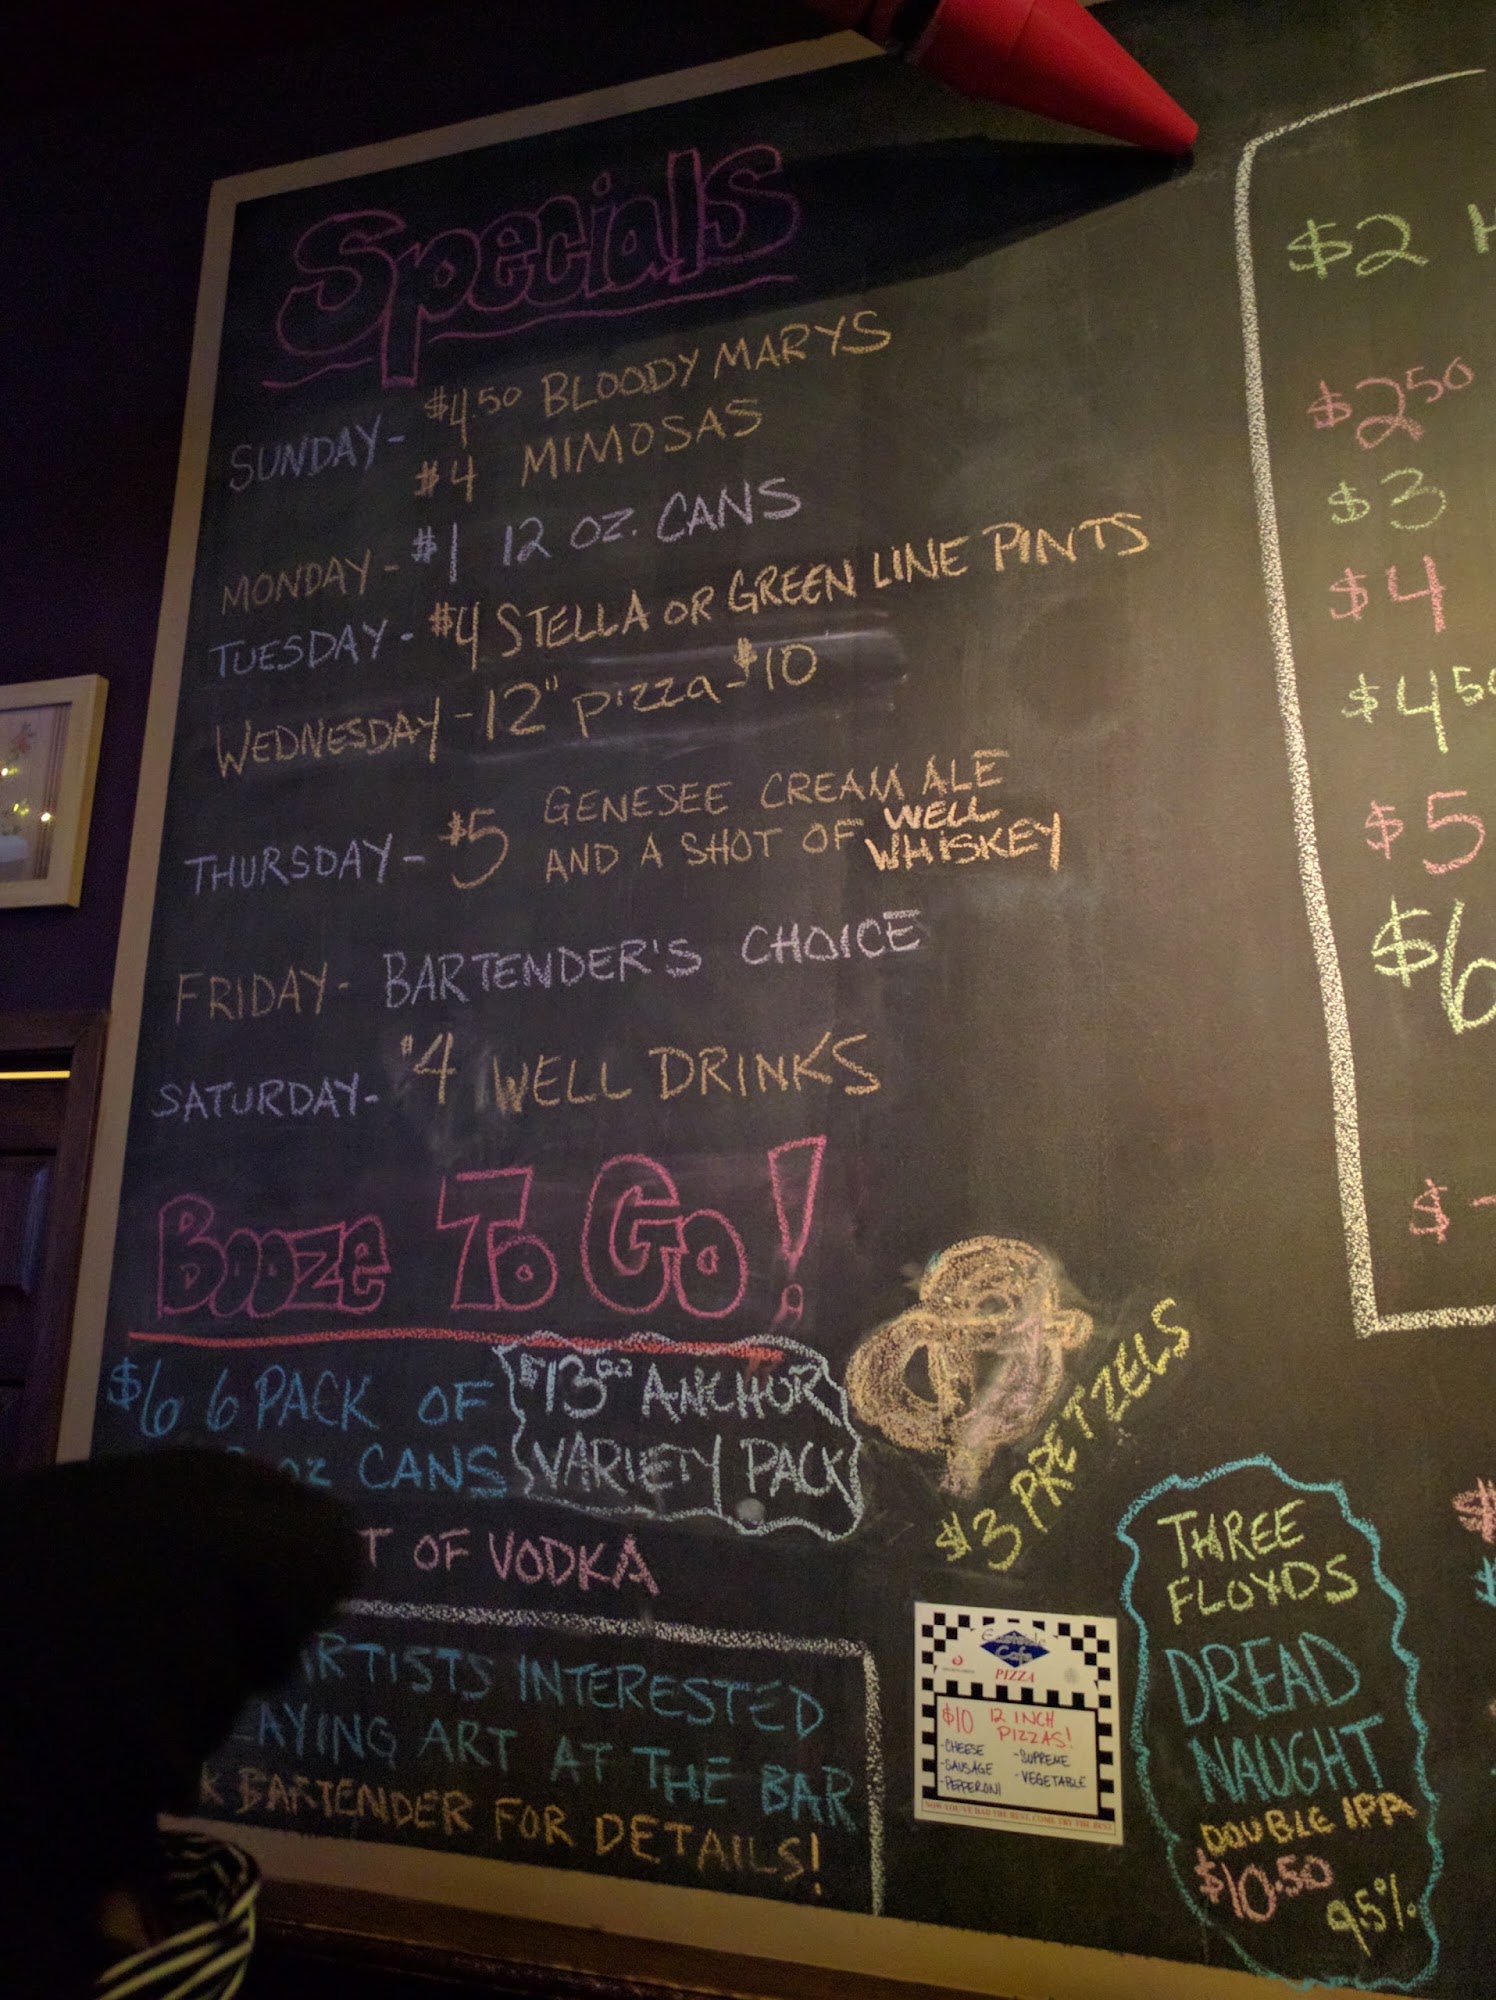 Specials
SUNDAY- $4.50 BLOODY MARYS
$4 MIMOSAS
MONDAY- $1 12 OZ. CANS
TUESDAY- $4 STELLA OR GREEN LINE PINTS
WEDNESDAY-12" pizza-$10
THURSDAY- $5 GENESEE CREAM ALE
AND A SHOT OF WELL
WHISKEY
FRIDAY- BARTENDER'S CHOICE
SATURDAY- $4 WELL DRINKS
Booze To Go!
$6 6 PACK OF
oz CANS
$13.00 ANCHOR
VARIETY PACK
T OF VODKA
$3 PRETZELS
ARTISTS INTERESTED
AYING ART AT THE BAR
K BARTENDER FOR DETAILS!
Cafe
PIZZA
$10 12 INCH
PIZZAS!
-CHEESE
-SAUSAGE
-PEPPERONI
-SUPREME
-VEGETABLE
THREE
FLOYDS
DREAD
NAUGHT
DOUBLE IPA
$10.50
9.5%
$2 H
$2 50
$3
$4
$4 50
$5
$6
$